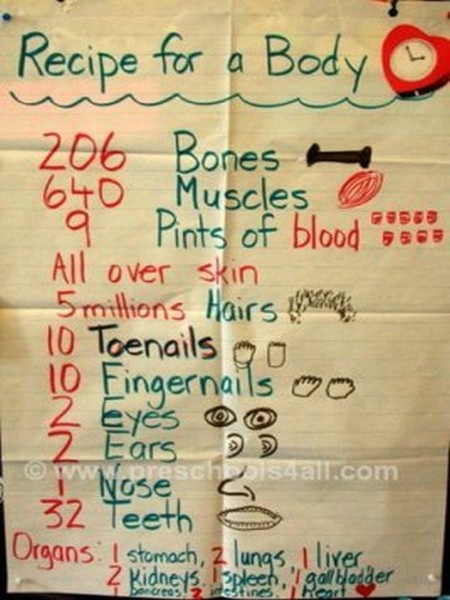 Recipe for a Body
206 Bones
640 Muscles
9 Pints of blood
All over skin
5 millions Hairs
10 Toenails
10 Fingernails
2 Eyes
2 Ears
© www.preschools4all.com
1 Nose
32 Teeth
Organs: 1 stomach, 2 lungs, 1 liver
2 kidneys, 1 spleen, 1 gallbladder
1 pancreas, 2 intestines, 1 heart